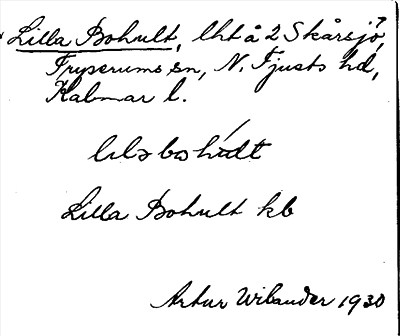 Lilla Bohult, lht å 2 Skårsjö?,
Tryserums sn, N. Tjusts hd,
Kalmar l.
lilə bohúlt
Lilla Bohult kb
Artur Wilander 1930